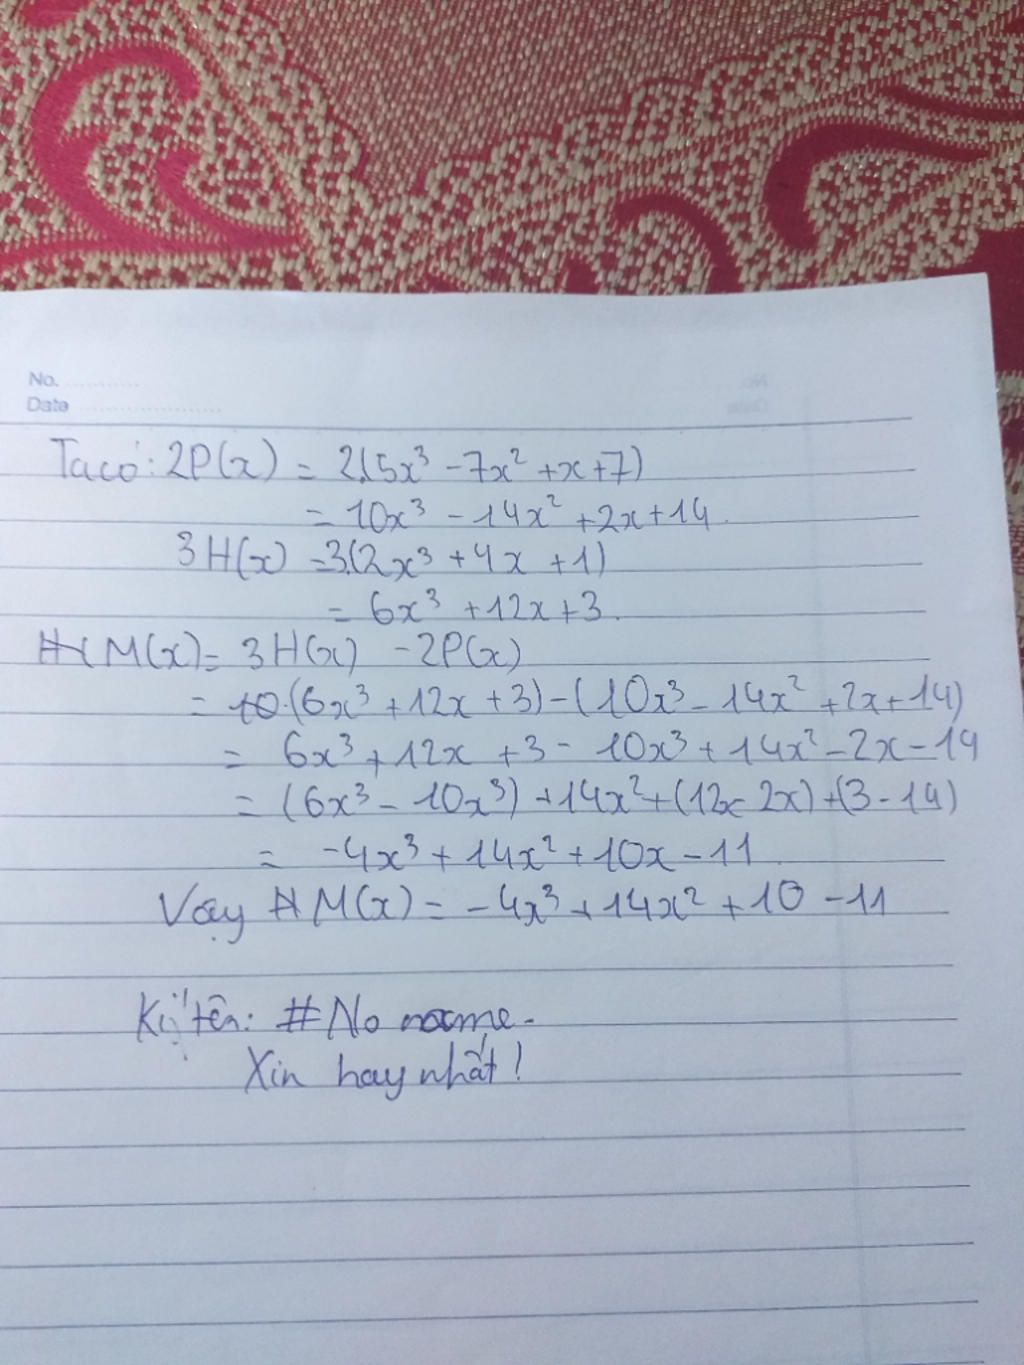 No. ............
Date ........................
Ta có: 2P(x) = 2.(5x³ - 7x² + x + 7)
= 10x³ - 14x² + 2x + 14.
3H(x) = 3.(2x³ + 4x + 1)
= 6x³ + 12x + 3.
M(x) = 3H(x) - 2P(x)
= (6x³ + 12x + 3) - (10x³ - 14x² + 2x + 14)
= 6x³ + 12x + 3 - 10x³ + 14x² - 2x - 14
= (6x³ - 10x³) + 14x² + (12x - 2x) + (3 - 14)
= -4x³ + 14x² + 10x - 11.
Vậy M(x) = -4x³ + 14x² + 10 - 11
Ký tên: #No name.
Xin hay nhất!